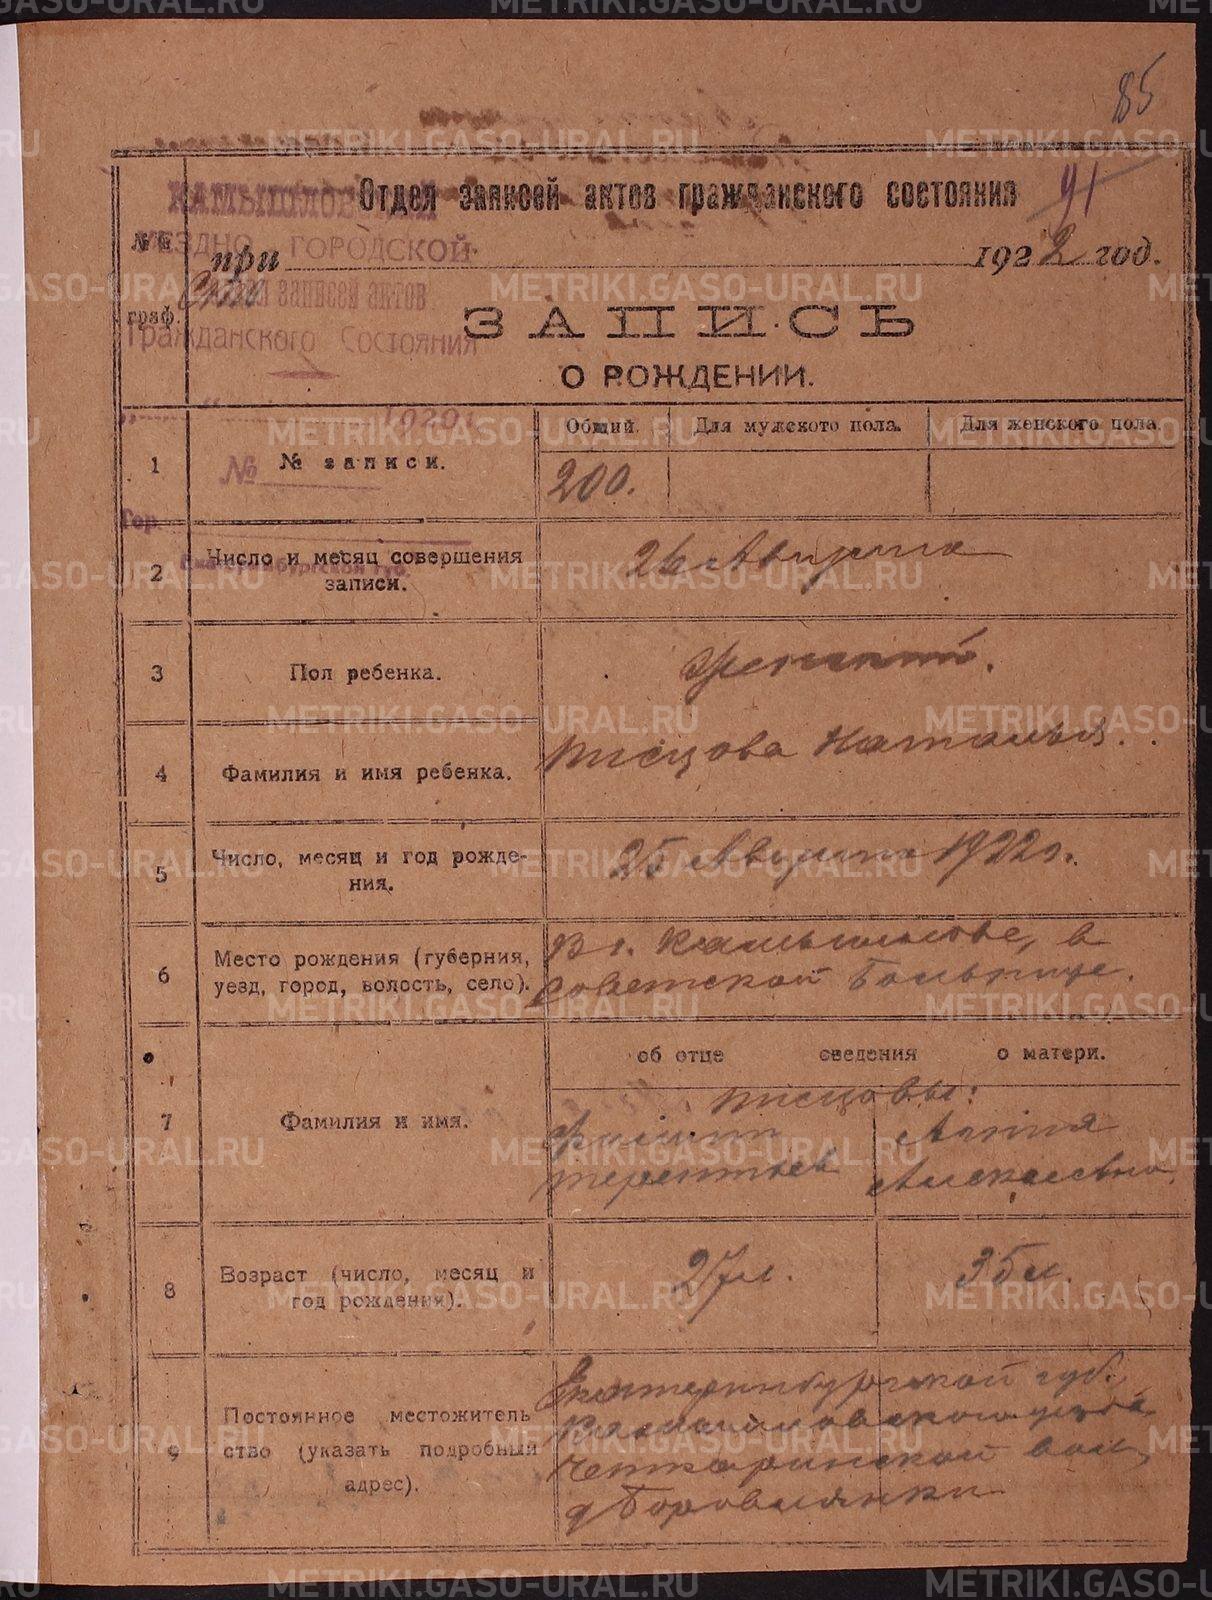 85
91
КАМЫШЛОВСКИЙ
Отдел записей актов гражданского состояния
УЕЗДНО ГОРОДСКОЙ
при 1922 год.
Отдел записей актов
Гражданского Состояния
№№ граф.
ЗАПИСЬ
О РОЖДЕНИИ.
1920 г.
№
Гор.
Екатеринбургской губ.
Общий. Для мужского пола. Для женского пола
1 № записи. 200.
2 Число и месяц совершения записи. 26 Августа
3 Пол ребенка. женский.
4 Фамилия и имя ребенка. Писцова Наталья.
5 Число, месяц и год рожде-
ния. 25 Августа 1922 г.
6 Место рождения (губерния, уезд, город, волость, село). В г. Камышлове, в
советской больнице.
об отце сведения о матери.
Писцовы:
7 Фамилия и имя. Филипп Анна
Терентьев Алексеевна
8 Возраст (число, месяц и год рождения). 27 л. 35 л.
9 Постоянное местожитель
ство (указать подробный адрес). Екатеринбургской губ.
Камышловского уезда
Четкаринской вол.
д Боровлянки
METRIKI.GASO-URAL.RU